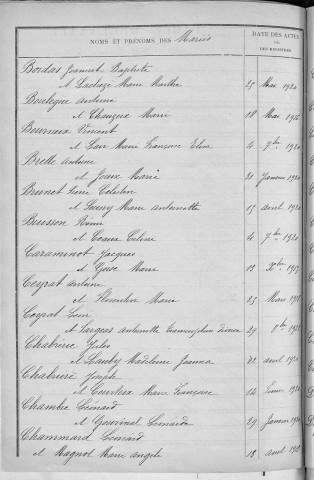 NOMS ET PRÉNOMS DES Mariés
DATE DES ACTES
OU
DES REGISTRES
Bordas Jeannet Baptiste
et Lachaze Marie Marthe 25 Mai 1920
Boulegue Antoine
et Chauzeix Marie 18 Mai 19
Bournaix Vincent
et Marie Françoise Elisa 4 7bre 1920
Brette Antoine
et Joux Marie 31 Janvier 1920
Brunet Célestin
et Marie Antoinette 15 avril 1920
Buisson Rémi
et Ceaux Céline 4 7bre 1920
Caraminot Jacques
et Marie 18 Xbre 1917
Ceyrat Antoine
et Florentin Marie 25 Mars 1918
Ceyrat Léon
et Fargeas Antoinette 29 8bre 1921
Chabrerie Jules
et Madeleine Jeanne 22 avril 1920
Chabrerie Joseph
et Courteix Marie Françoise 14 Février 1920
Chambre Léonard
et Léonarda 29 Janvier 1920
Chammard Léonard
et Magnol Marie Angèle 18 avril 19